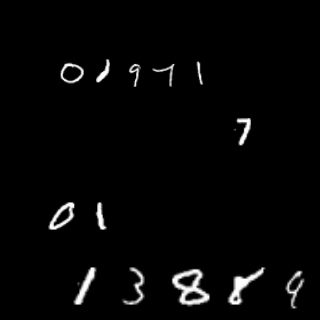 01971
7
01
13889